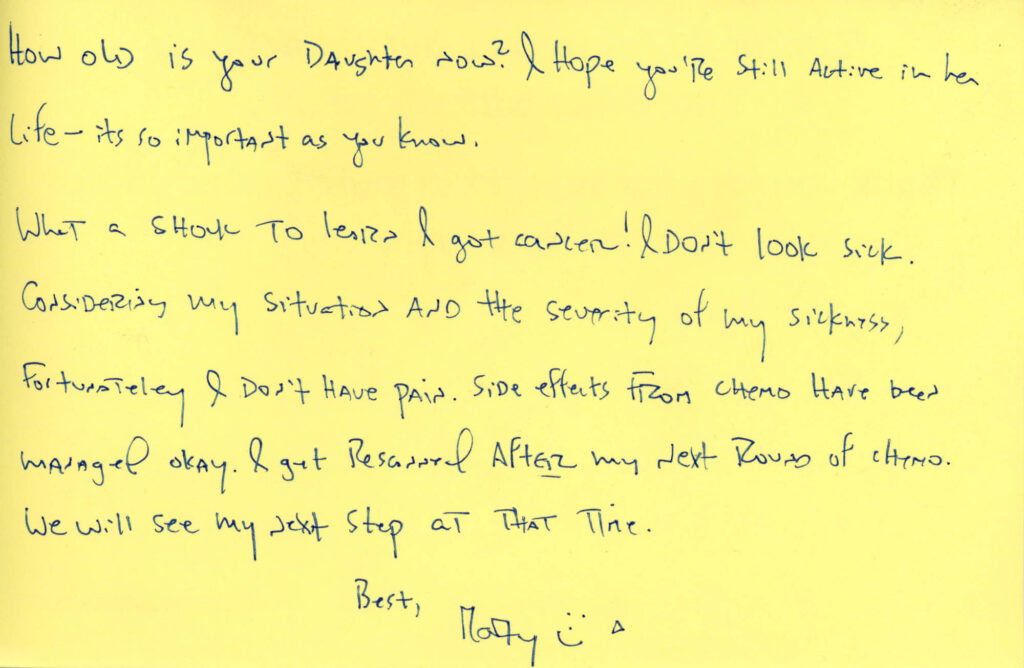 How old is your Daughter now? I Hope you're Still Active in her
life – its so important as you know.
What a SHOCK TO learn I got cancer! I DON'T look sick.
Considering my situation AND the severity of my sickness,
Fortunateley I DON'T HAVE pain. Side effects FROM CHEMO HAVE been
managed okay. I get Rescanned AFTER my next Round of CHEMO.
We will see my next step AT THAT Time.
Best,
Matty